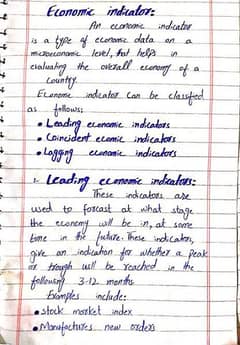 Economic indicator:-
An economic indicator
is a type of economic data on a
microeconomic level, that helps in
evaluating the overall economy of a
country.
Economic indicator can be classified
as follows:
• Leading economic indicators
• Coincident ecomic indicators
• Lagging economic indicators
1- Leading economic indicators:-
These indicators are
used to forcast at what stage
the economy will be in, at some
time in the future. These indicators,
give an indication for whether a peak
or trough will be reached in the
following 3-12 months
Examples include:
• stock market index
• Manufactures new orders